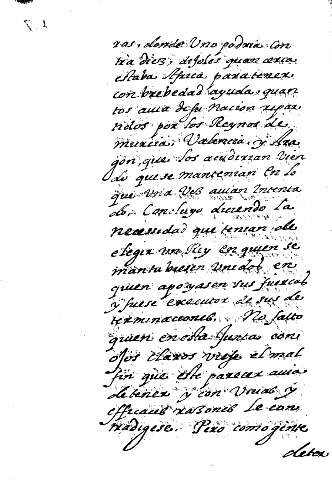 ras, donde Uno podria con
tra diez, dijoles quan cerca
estaba Africa para tener
con brebedad ayuda, quan
tos avia de su Nacion repar
tidos por los Reynos de
murcia, Valencia, y Ara
gon, que los acudirian vien
do que se mantenian en lo
que una vez avian Intenta
do. Concluyo diciendo la
necesidad que tenian de
elegir un Rey en quien se
mantubiesen Unidos, en
quien apoyasen sus fuerzas
y fuese executor de sus de
terminaciones. No falto
quien en esta Junta con
ojos claros viese el mal
fin que este parecer avia
de tener y con vivas y
efficaces razones le con
tradigese. Pero como gente
deter